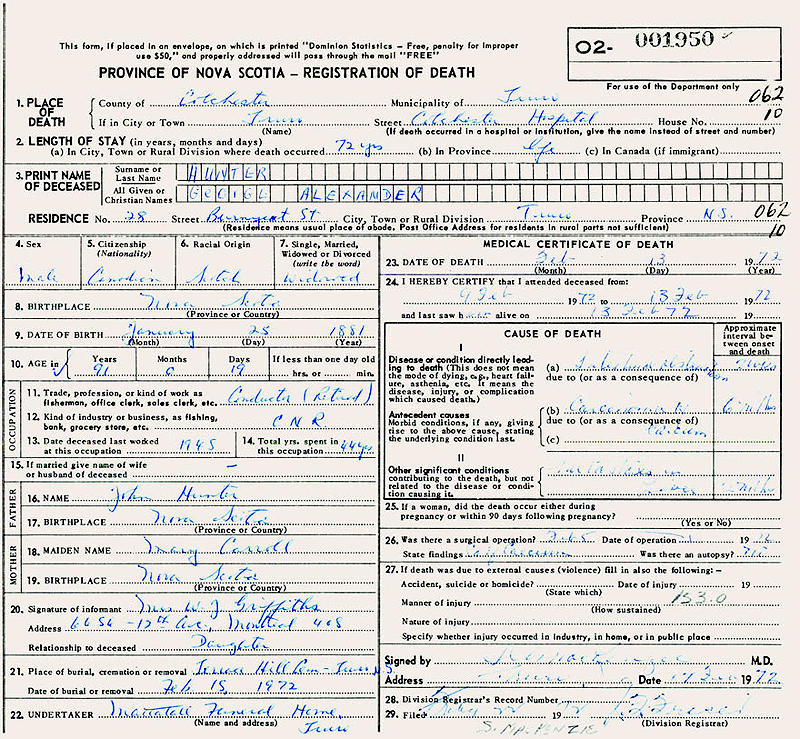 This form, if placed in an envelope, on which is printed "Dominion Statistics – Free, penalty for improper
use $50," and properly addressed will pass through the mail "FREE"
O2- 001950
PROVINCE OF NOVA SCOTIA – REGISTRATION OF DEATH
For use of the Department only
1. PLACE OF DEATH County of Colchester Municipality of Truro 062
If in City or Town Truro Street Colchester Hospital House No. 10
(Name) (If death occurred in a hospital or institution, give the name instead of street and number)
2. LENGTH OF STAY (in years, months and days)
(a) In City, Town or Rural Division where death occurred 72 yrs (b) In Province life (c) In Canada (if immigrant)
3. PRINT NAME OF DECEASED Surname or Last Name HUNTER
All Given or Christian Names GEORGE ALEXANDER
RESIDENCE No. 28 Street St City, Town or Rural Division Truro Province N.S. 062
(Residence means usual place of abode. Post Office Address for residents in rural parts not sufficient) 10
4. Sex Male
5. Citizenship (Nationality) Canadian
6. Racial Origin Scotch
7. Single, Married, Widowed or Divorced (write the word) Widowed
8. BIRTHPLACE Nova Scotia
(Province or Country)
9. DATE OF BIRTH January 25 1881
(Month) (Day) (Year)
10. AGE in Years 91 Months 0 Days 19 If less than one day old hrs. or min.
OCCUPATION
11. Trade, profession, or kind of work as fisherman, office clerk, sales clerk, etc. Conductor (Retired)
12. Kind of industry or business, as fishing, bank, grocery store, etc. CNR
13. Date deceased last worked at this occupation 1945
14. Total yrs. spent in this occupation 44 yrs
15. If married give name of wife or husband of deceased –
FATHER
16. NAME John Hunter
17. BIRTHPLACE Nova Scotia
(Province or Country)
MOTHER
18. MAIDEN NAME Mary Carroll
19. BIRTHPLACE Nova Scotia
(Province or Country)
20. Signature of informant Mrs W. J. Griffiths
Address 6656 – 12th Ave. Montreal 408
Relationship to deceased Daughter
21. Place of burial, cremation or removal Terrace Hill Cem – Truro N.S.
Date of burial or removal Feb 15, 1972
22. UNDERTAKER Mattatall Funeral Home
(Name and address) Truro
MEDICAL CERTIFICATE OF DEATH
23. DATE OF DEATH Feb 13 1972
(Month) (Day) (Year)
24. I HEREBY CERTIFY that I attended deceased from:
9 Feb 1972 to 13 Feb 1972
and last saw h alive on 13 Feb 72 19
CAUSE OF DEATH
Approximate interval between onset and death
I
Disease or condition directly leading to death (This does not mean the mode of dying, e.g., heart failure, asthenia, etc. It means the disease, injury, or complication which caused death.)
(a)
due to (or as a consequence of)
Antecedent causes
Morbid conditions, if any, giving rise to the above cause, stating the underlying condition last.
(b) Carcinoma
due to (or as a consequence of)
(c)
II
Other significant conditions contributing to the death, but not related to the disease or condition causing it.
25. If a woman, did the death occur either during pregnancy or within 90 days following pregnancy?
(Yes or No)
26. Was there a surgical operation? Date of operation 19
State findings Was there an autopsy? no
27. If death was due to external causes (violence) fill in also the following:–
Accident, suicide or homicide? Date of injury 19
(State which)
Manner of injury 153.0
(How sustained)
Nature of injury
Specify whether injury occurred in industry, in home, or in public place
Signed by M.D.
Address Truro 1972
28. Division Registrar's Record Number
29. Filed
(Division Registrar)
S. MACKENZIE